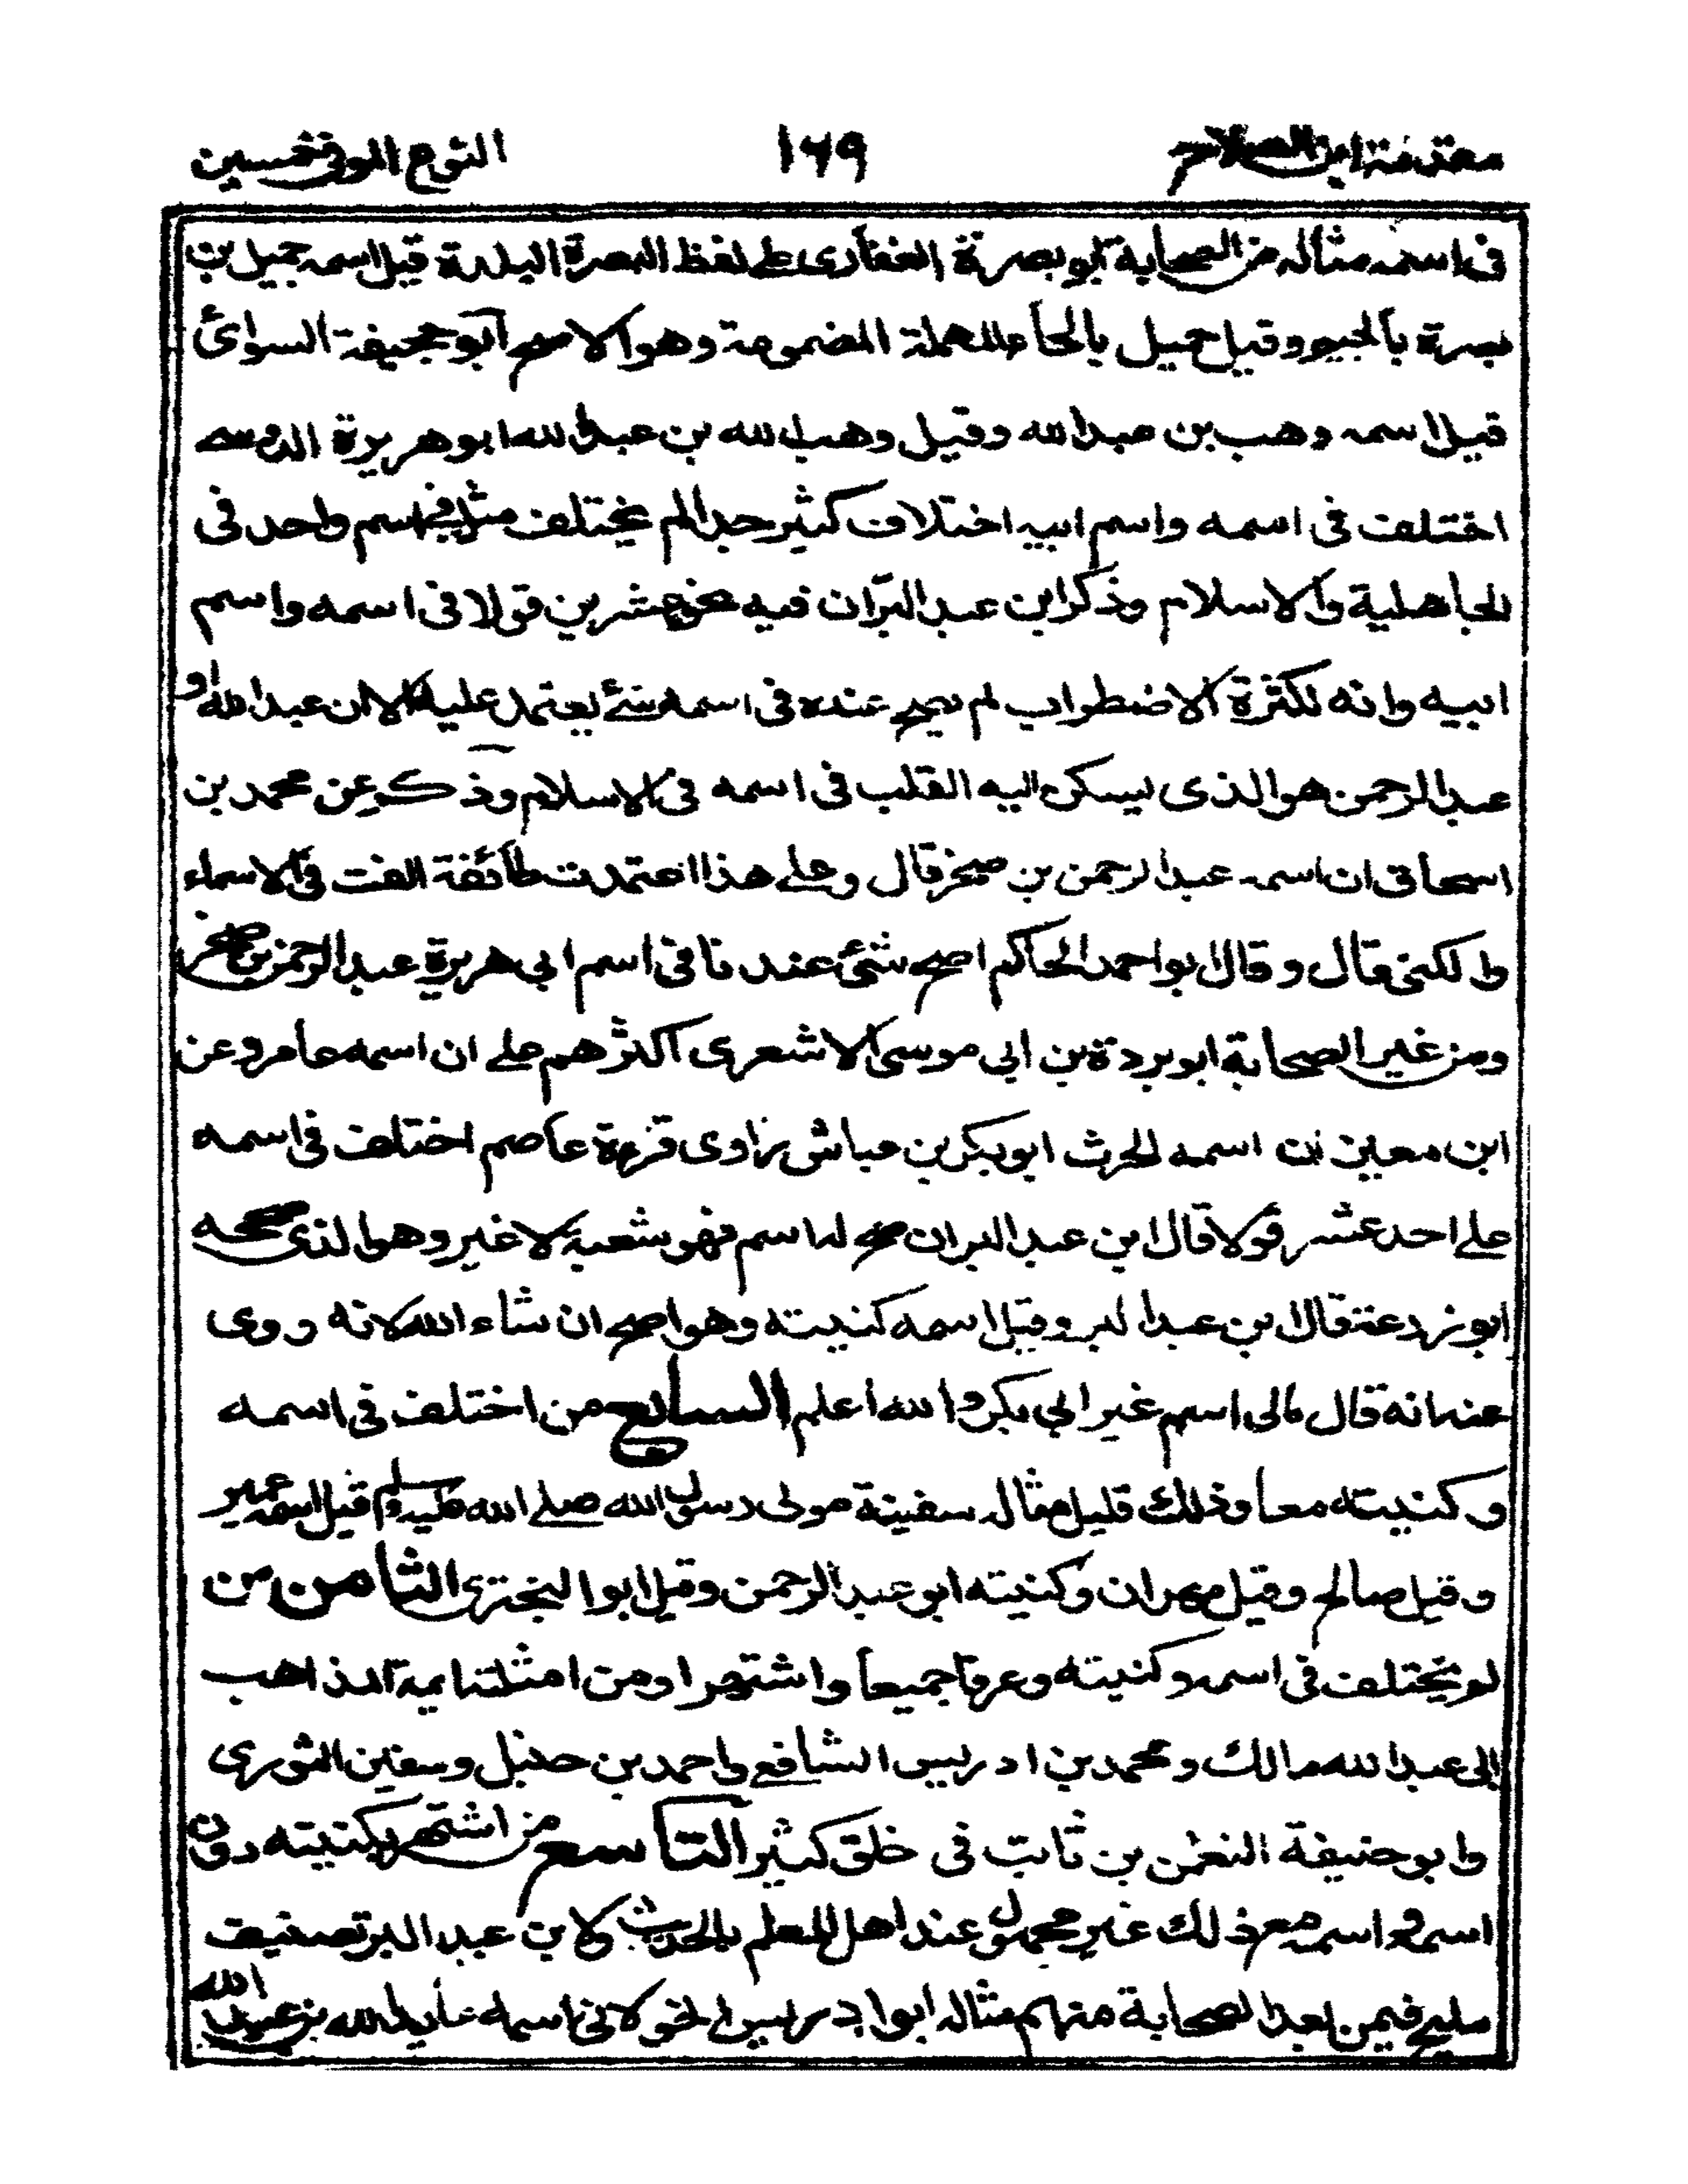 مقدمة ابن الصلاح ١٦٩ النوع الموفی خمسین
فی اسمه مثاله من الصحابة ابو بصرة الغفاری علی لفظ البصرة البلدة قیل اسمه جمیل بن
بصرة بالجیم وقیل حمیل بالحاء المهملة المضمومة وهو الاصح ابو جحیفة السوائ
قیل اسمه وهب بن عبد الله وقیل وهب الله بن عبد الله ابو هریرة الدوسے
اختلف فی اسمه واسم ابیه اختلاف کثیر جدا لم یختلف مثله فی اسم واحد فی
الجاهلیة والاسلام وذکر ابن عبد البر ان فیه نحو عشرین قولا فی اسمه واسم
ابیه وانه لکثرة الاضطراب لم یصح عنده فی اسمه شئ یعتمد علیه الا ان عبد الله او
عبد الرحمن هو الذی یسکن الیه القلب فی اسمه فی الاسلام وذکر عن محمد بن
اسحاق ان اسمه عبد الرحمن بن صخر قال وعلے هذا اعتمدت طائفة الفت فی الاسماء
والکنی قال وقال ابو احمد الحاکم اصح شئ عندنا فی اسم ابی هریرة عبد الرحمن بن صخر
ومن غیر الصحابة ابو بردة بن ابی موسی الاشعری اکثرهم علے ان اسمه عامر وعن
ابن معین ان اسمه الحرث ابو بکر بن عیاش راوی قرءة عاصم اختلف فی اسمه
علے احد عشر قولا قال ابن عبد البر ان صح له اسم فهو شعبة لا غیر وهو الذی صححه
ابو زرعة قال ابن عبد البر وقیل اسمه کنیته وهو اصح ان شاء الله لانه روی
عنه انه قال مالی اسم غیر ابی بکر والله اعلم السابع من اختلف فی اسمه
وکنیته معا وذلك قلیل مثاله سفینة مولی رسول الله صلے الله علیه وسلم قیل اسمه عمیر
وقیل صالح وقیل مهران وکنیته ابو عبد الرحمن وقیل ابو البختری الثامن من
لم یختلف فی اسمه وکنیته وعرفا جمیعا واشتهرا ومن امثلته ائمة المذاهب
ابی عبد الله مالك ومحمد بن ادریس الشافعے واحمد بن حنبل وسفین الثوری
وابو حنیفة النعمن بن ثابت فی خلق کثیر التاسع من اشتهر بکنیته دون
اسمه واسمه مع ذلك غیر مجهول عند اهل العلم بالحدیث ولابن عبد البر تصنیف
ملیح فیمن بعد الصحابة منهم مثاله ابو ادریس الخولانی اسمه عایذ الله بن عبد الله